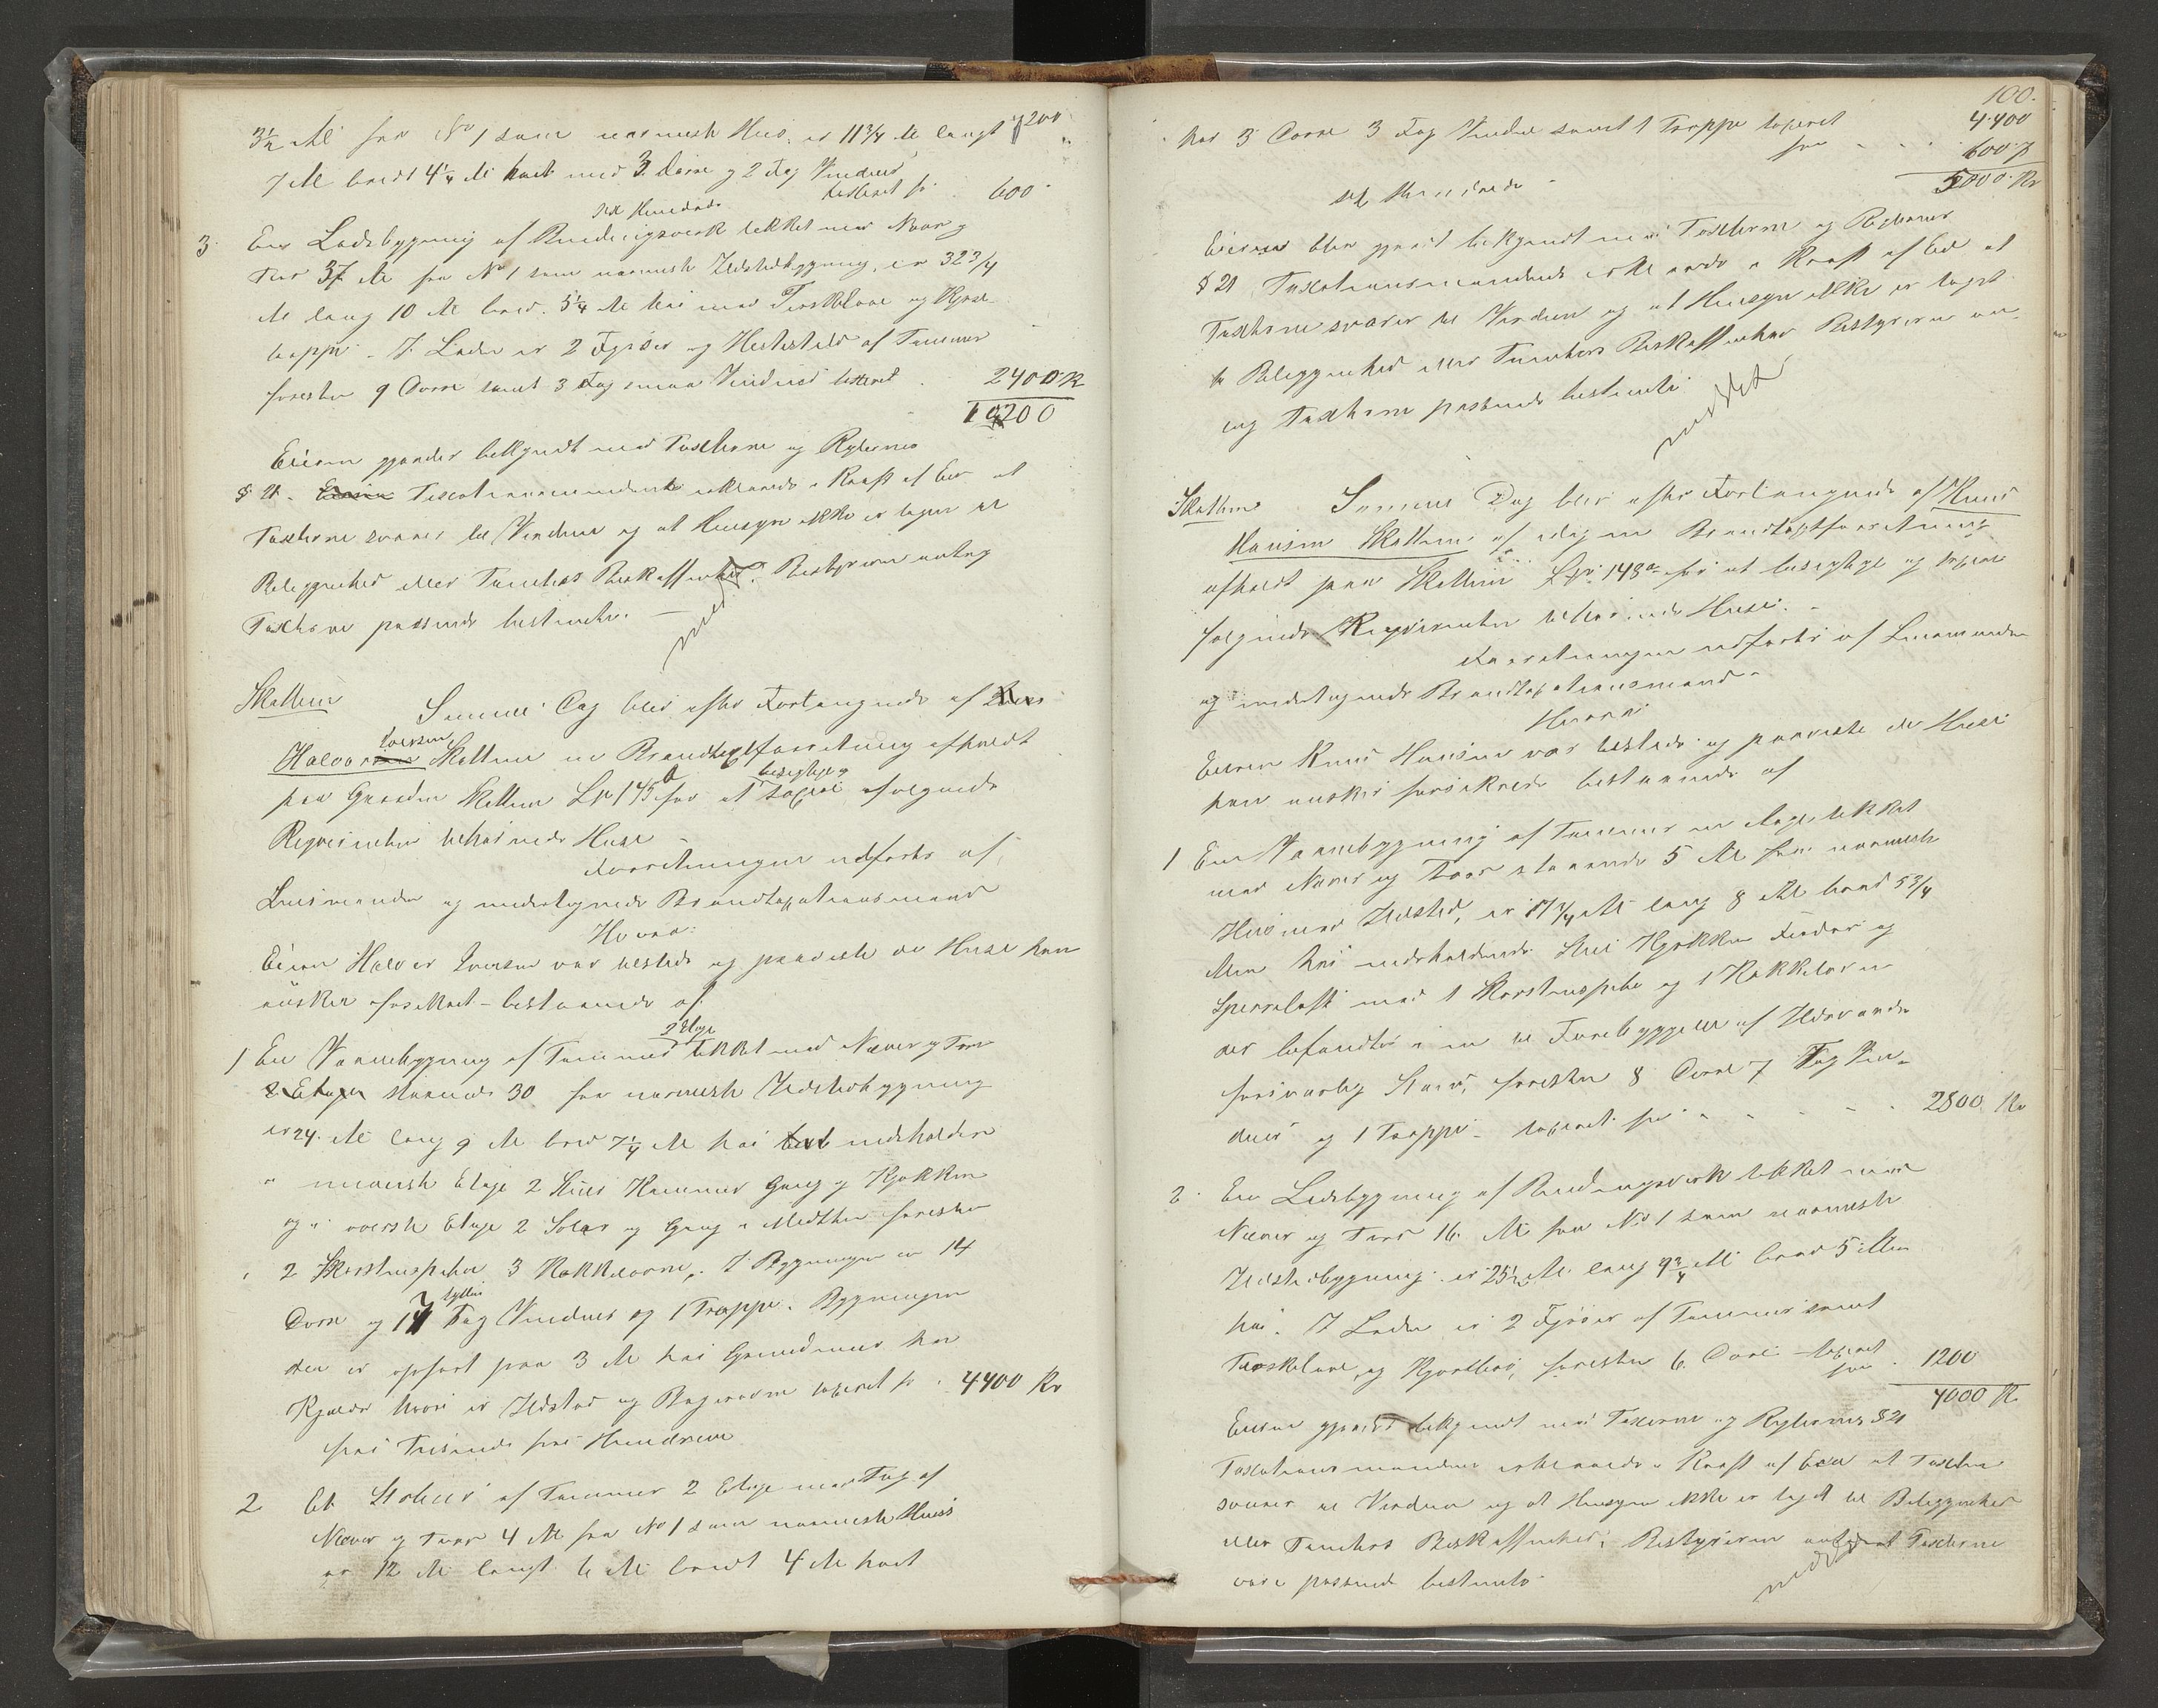 3½ Al fra No 1 som nærmeste Huus, er 11¾ Al langt 7200
7 Al bredt 4¼ Al høit med 3 Dørre og 2 Fag Vinduer
taxeret for 600
sex Hundrede
3 En Ladebygning af Bindingsværk tekket med Næver og
Torv 37 Al fra No 1 som nærmeste Ildstedbygning, er 32¾
Al lang 10 Al bred. 5¼ Al høi med Treskelaae og Kjøre
trappe. I Laden er 2 Fjøser og Hestestald af Tømmer
forresten 9 Dørre samt 3 Fag smaa Vinduer taxeret 2400 Kr
10200
Eieren gjordes bekjendt med Taxterne og Reglernes
§ 21. Taxationsmændene erklærede i Kraft af Eed at
Taxterne svarer til Værdien og at Hensyn ikke er tagen til
Beliggenhed eller Tomtens Beskaffenhed. Bestyreren antog
Taxterne passende bestemte.
meddelt
Skallum Samme Dag blev efter Forlangende af
Iversen
Halvor Skallum en Brandtaxtforretning afholdt
besigtige og
paa Gaarden Skallum Lø 145b for at taxere følgende
Reqvirenten tilhørende Huse
Forretningen udførtes af
Lensmanden og undertegnede Brandtaxationsmænd
Hvorva:
Eieren Halvor Iversen var tilstede og paaviste de Huse han
ønsker forsikret bestaaende af:
2 Etage
1 En Vaanebygning af Tømmer tekket med Næver og Torv
2 Etager staaende 30 fra nærmeste Ildstedbygning
er 24 Al lang 9 Al bred 7¼ Al høi indeholder
i nederste Etage 2 Stuer Kammer Gang og Kjøkken
og i øverste Etage 2 Soler og Gang i Midten forresten
2 Skorstenspiber 3 Kakkelovne. I Bygningen er 14
Dørre og 17 Fag Vinduer og 1 Trappe. Bygningen
der er opført paa 3 Al høi Grundmuur har
Kjælder hvori er Ildsted og Bagerovn taxeret for 4400 Kr
fire Tusinde fire Hundrede
2 Et Stolpehus af Tømmer 2 Etage med Tag af
Næver og Torv 4 Al fra No 1 som nærmeste Huus
er 12 Al langt 6 Al bredt 4 Al høit
100.
4400
har 3 Dørre 3 Fag Vinduer samt 1 Trappe taxeret
for 600
5000 Kr
sex Hundrede
Eieren blev gjort bekjendt med Taxterne og Reglernes
§ 21 Taxationsmændene erklærede i Kraft af Eed at
Taxterne svarer til Værdien og at Hensyn ikke er taget
til Beliggenhed eller Tomtens Beskaffenhed Bestyreren an-
tog Taxterne passende bestemte
meddelt
Skallum Samme Dag blev efter Forlangende af Knud
Hansen Skallum af Brandtaxtforretning
afholdt paa Skallum Lø 148a for at besigtige og taxere
følgende Reqvirenten tilhørende Huse.
Forretningen udførtes af Lensmanden
og undertegnede Brandtaxationsmænd
Hvorva:
Eieren Knud Hansen var tilstede og paaviste de Huse
han ønsker forsikrede bestaaende af
1 En Vaanebygning af Tømmer en Etage tekket
med Næver og Torv staaende 5 Al fra nærmeste
Huus med Ildsted, er 17¾ Al lang 8 Al bred 5¾
Alen høi indeholdende Stue Kjøkken Fordør og
Sperreloft med 1 Skorstenspibe og 1 Kakkelovn
der befandtes i en til Forebyggelse af Ildsvaade
forsvarlig Stand, forresten 8 Dørre 7 Fag Vin-
duer og 1 Trappe taxeret for 2800 Kr
2 En Ladebygning af Bindingsværk tekket med
Næver og Torv 16 Al fra No 1 som nærmeste
Ildstedbygning er 25½ Al lang 9¾ Al bred 5 Alen
høi. I Laden er 2 Fjøser af Tømmer samt
Treskelaae og Kjørebro, forresten 6 Dørre taxeret
for 1200
4000 Kr
Eieren gjordes bekjendt med Taxterne og Reglernes § 21
Taxationsmændene erklærede i Kraft af Eed at Taxterne
svarer til Værdien og at Hensyn ikke er taget til Beliggenhed
eller Tomtens Beskaffenhed. Bestyreren antog at Taxterne
vare passende bestemte
meddelt